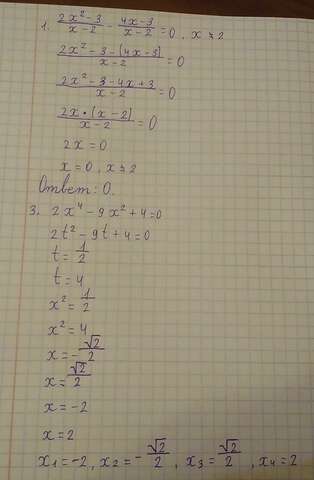 1. (2x² - 3)/(x - 2) - (4x - 3)/(x - 2) = 0, x ≠ 2
(2x² - 3 - (4x - 3))/(x - 2) = 0
(2x² - 3 - 4x + 3)/(x - 2) = 0
(2x • (x - 2))/(x - 2) = 0
2x = 0
x = 0, x ≠ 2
Ответ: 0.
3. 2x⁴ - 9x² + 4 = 0
2t² - 9t + 4 = 0
t = 1/2
t = 4
x² = 1/2
x² = 4
x = -√2/2
x = √2/2
x = -2
x = 2
x₁ = -2, x₂ = -√2/2, x₃ = √2/2, x₄ = 2